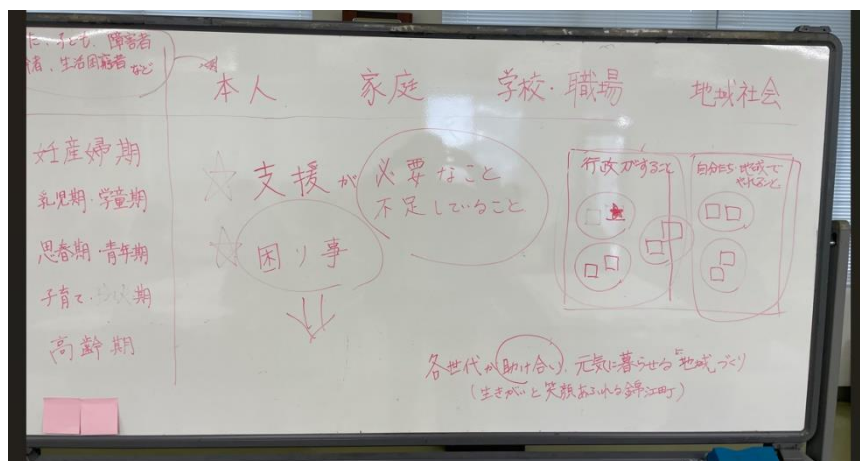 子ども、障害者
者、生活困窮者 など
本人 家庭 学校・職場 地域社会
妊産婦期
乳児期・学童期
思春期・青年期
子育て・ 期
高齢期
☆支援が必要なこと
不足していること
☆困り事
行政がすること
自分たち・地域で
やれること
各世代が助け合い、元気に暮らせる"地域"づくり
(生きがいと笑顔あふれる錦江町)